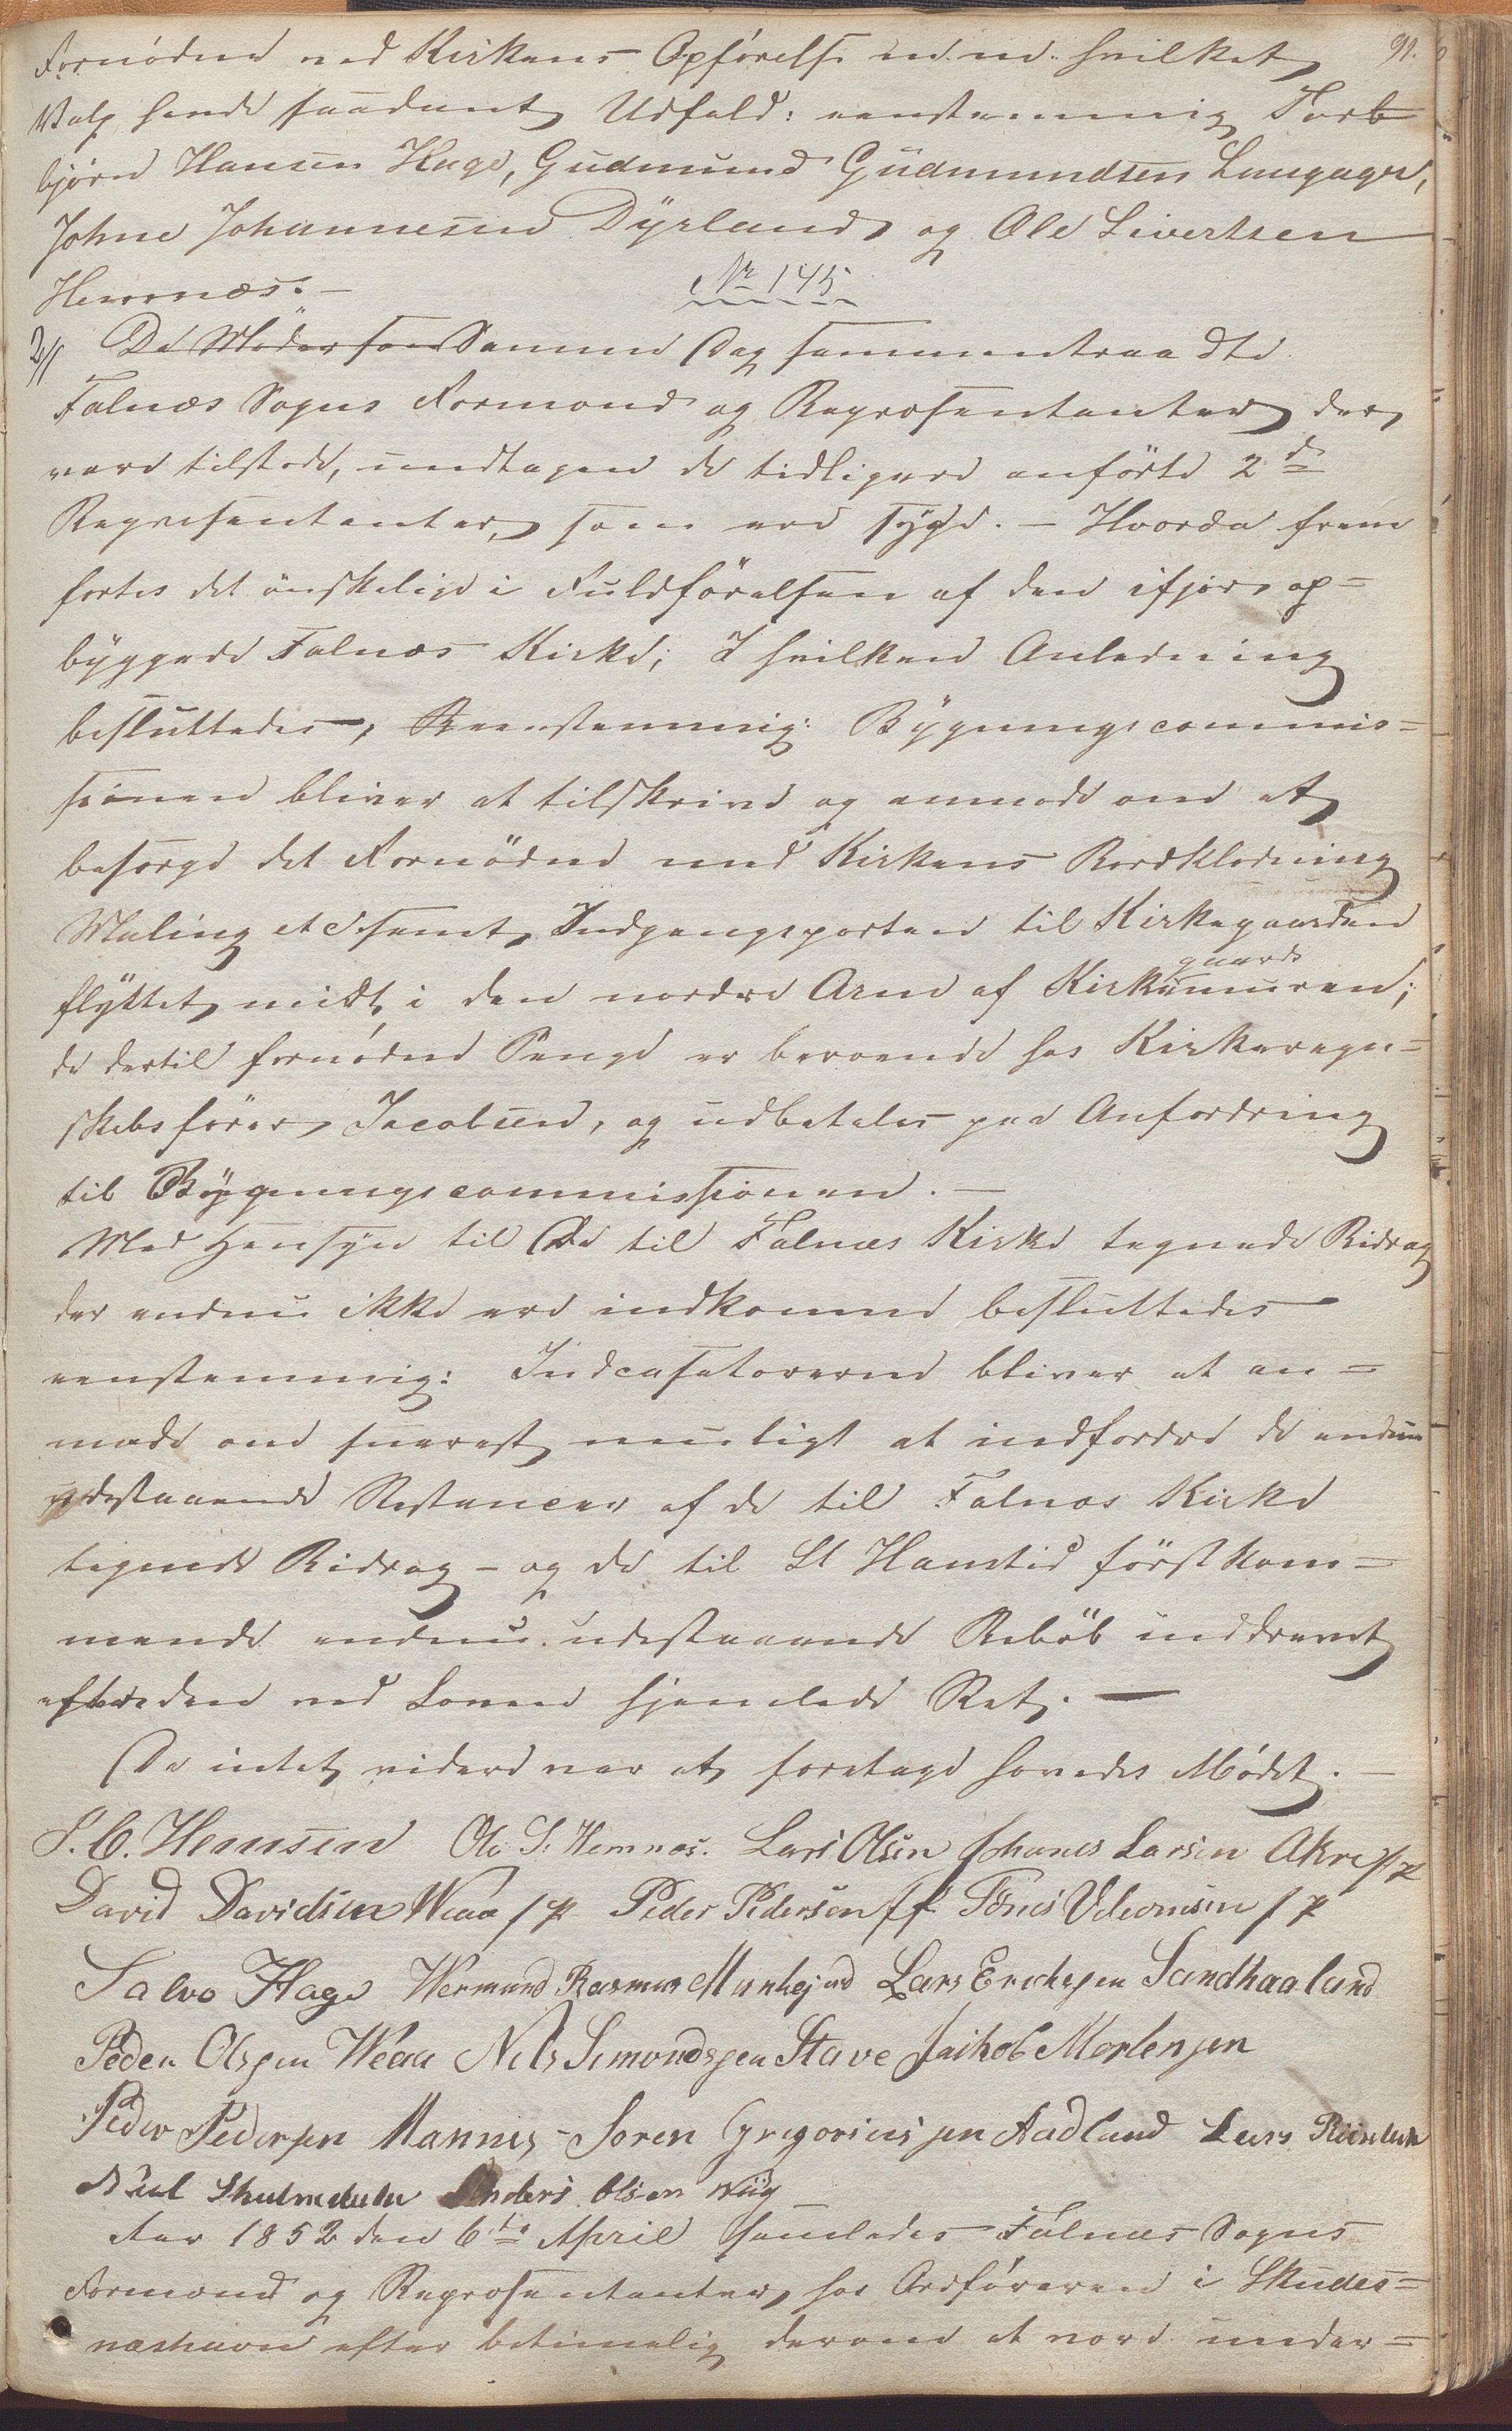 Fornødne ved Kirkens Opførelse m. m. hvilket 91.
Valg havde saadant Udfald: eenstemmig Torb-
bjørn Hansen Hage, Gudmund Gudmundsen Langager,
Johne Johannesen Dÿrland og Ole Sivertsen
Hemnæs. —
No 145
2// De Møder som Samme Dag sammentraadte
Falnæs Sogns Formænd og Repræsentanter der
vare tilstede, undtagen de tidligere anførte 2de
Repræsentanter, som ere sÿge. — Hvorda frem
sattes det ønskelige i Fuldførelsen af den ifjor op-
bÿggede Falnæs Kirke; I hvilken Anledning
besluttedes, eenstemmig: Bÿgningscommis-
sionen bliver at tilskrive og anmode om at
besørge det Fornødne med Kirkens Bordklædning
Maling etc samt Indgangsporten til Kirkegaarden
flÿttet midt i den nordre Arm af Kirkegaardsmuren;
de dertil fornødne Penge er beroende hos Kirkeregn-
skabsfører Jacobsen, og udbetales paa Anfordring
til Bÿgningscommissionen. —
Med Hensÿn til De til Falnæs Kirke tegnede Bidrag
der endnu ikke ere indkomne besluttedes
eenstemmig: Indcasatorerne bliver at an-
mode om snarest muligt at indfordre de endnu
udestaaende Restancer af de til Falnæs Kirke
tegnede Bidrag - og de til St Hanstid førstkom-
mende endnu udestaaende Beløb inddrevet
efter den ved Loven hjemlede Ret. —
Da intet videre var at foretage hævedes Mødet. —
S. C. Hemsen Ole S. Hemnes. Lars Olsen Johanes Larsen Akre / p
David Davidsen Weaa / p Peder Pedersen / p Tønes Udeonisen / p
Salvo Hage Wermund Rasmus Munkejord Lars Erichsjen Sandhaaland
Peder Olsjen Weaa Nels Simondsjen Stave Jaikob Mortensjen
Peder Pedersjen Mannes - Soren Gregoriusjen Aadland Lars
Anders Olsen Wiig
Aar 1852 den 6te April samledes Falnæs Sogns
Formænd og Repræsentanter, hos Ordføreren i Skudes-
næshavn efter betimelig derom at være under-